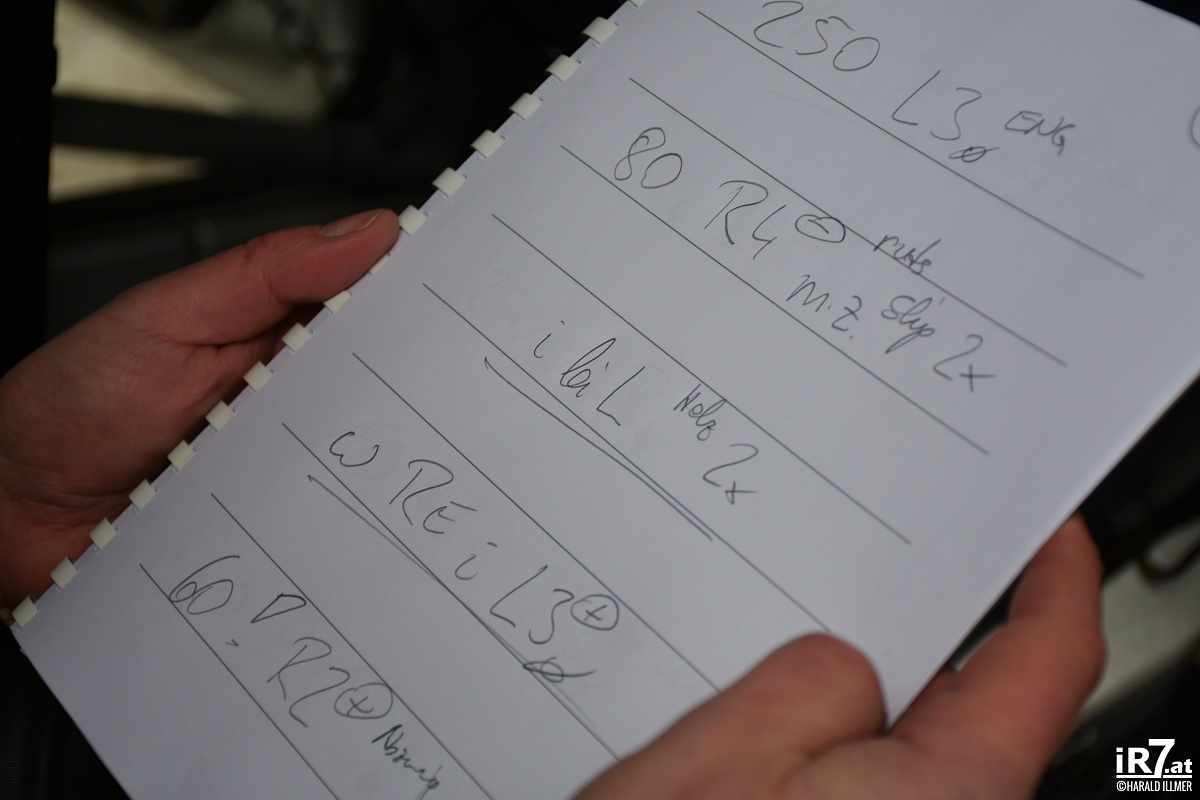 250 L3 ø ENG
80 R4 ⊖ ruts
m.Z. Slip 2x
i bei L Holz 2x
ω RE i L3 ⊕ ø
60 R2 ⊕
iR7.at
©HARALD ILLMER